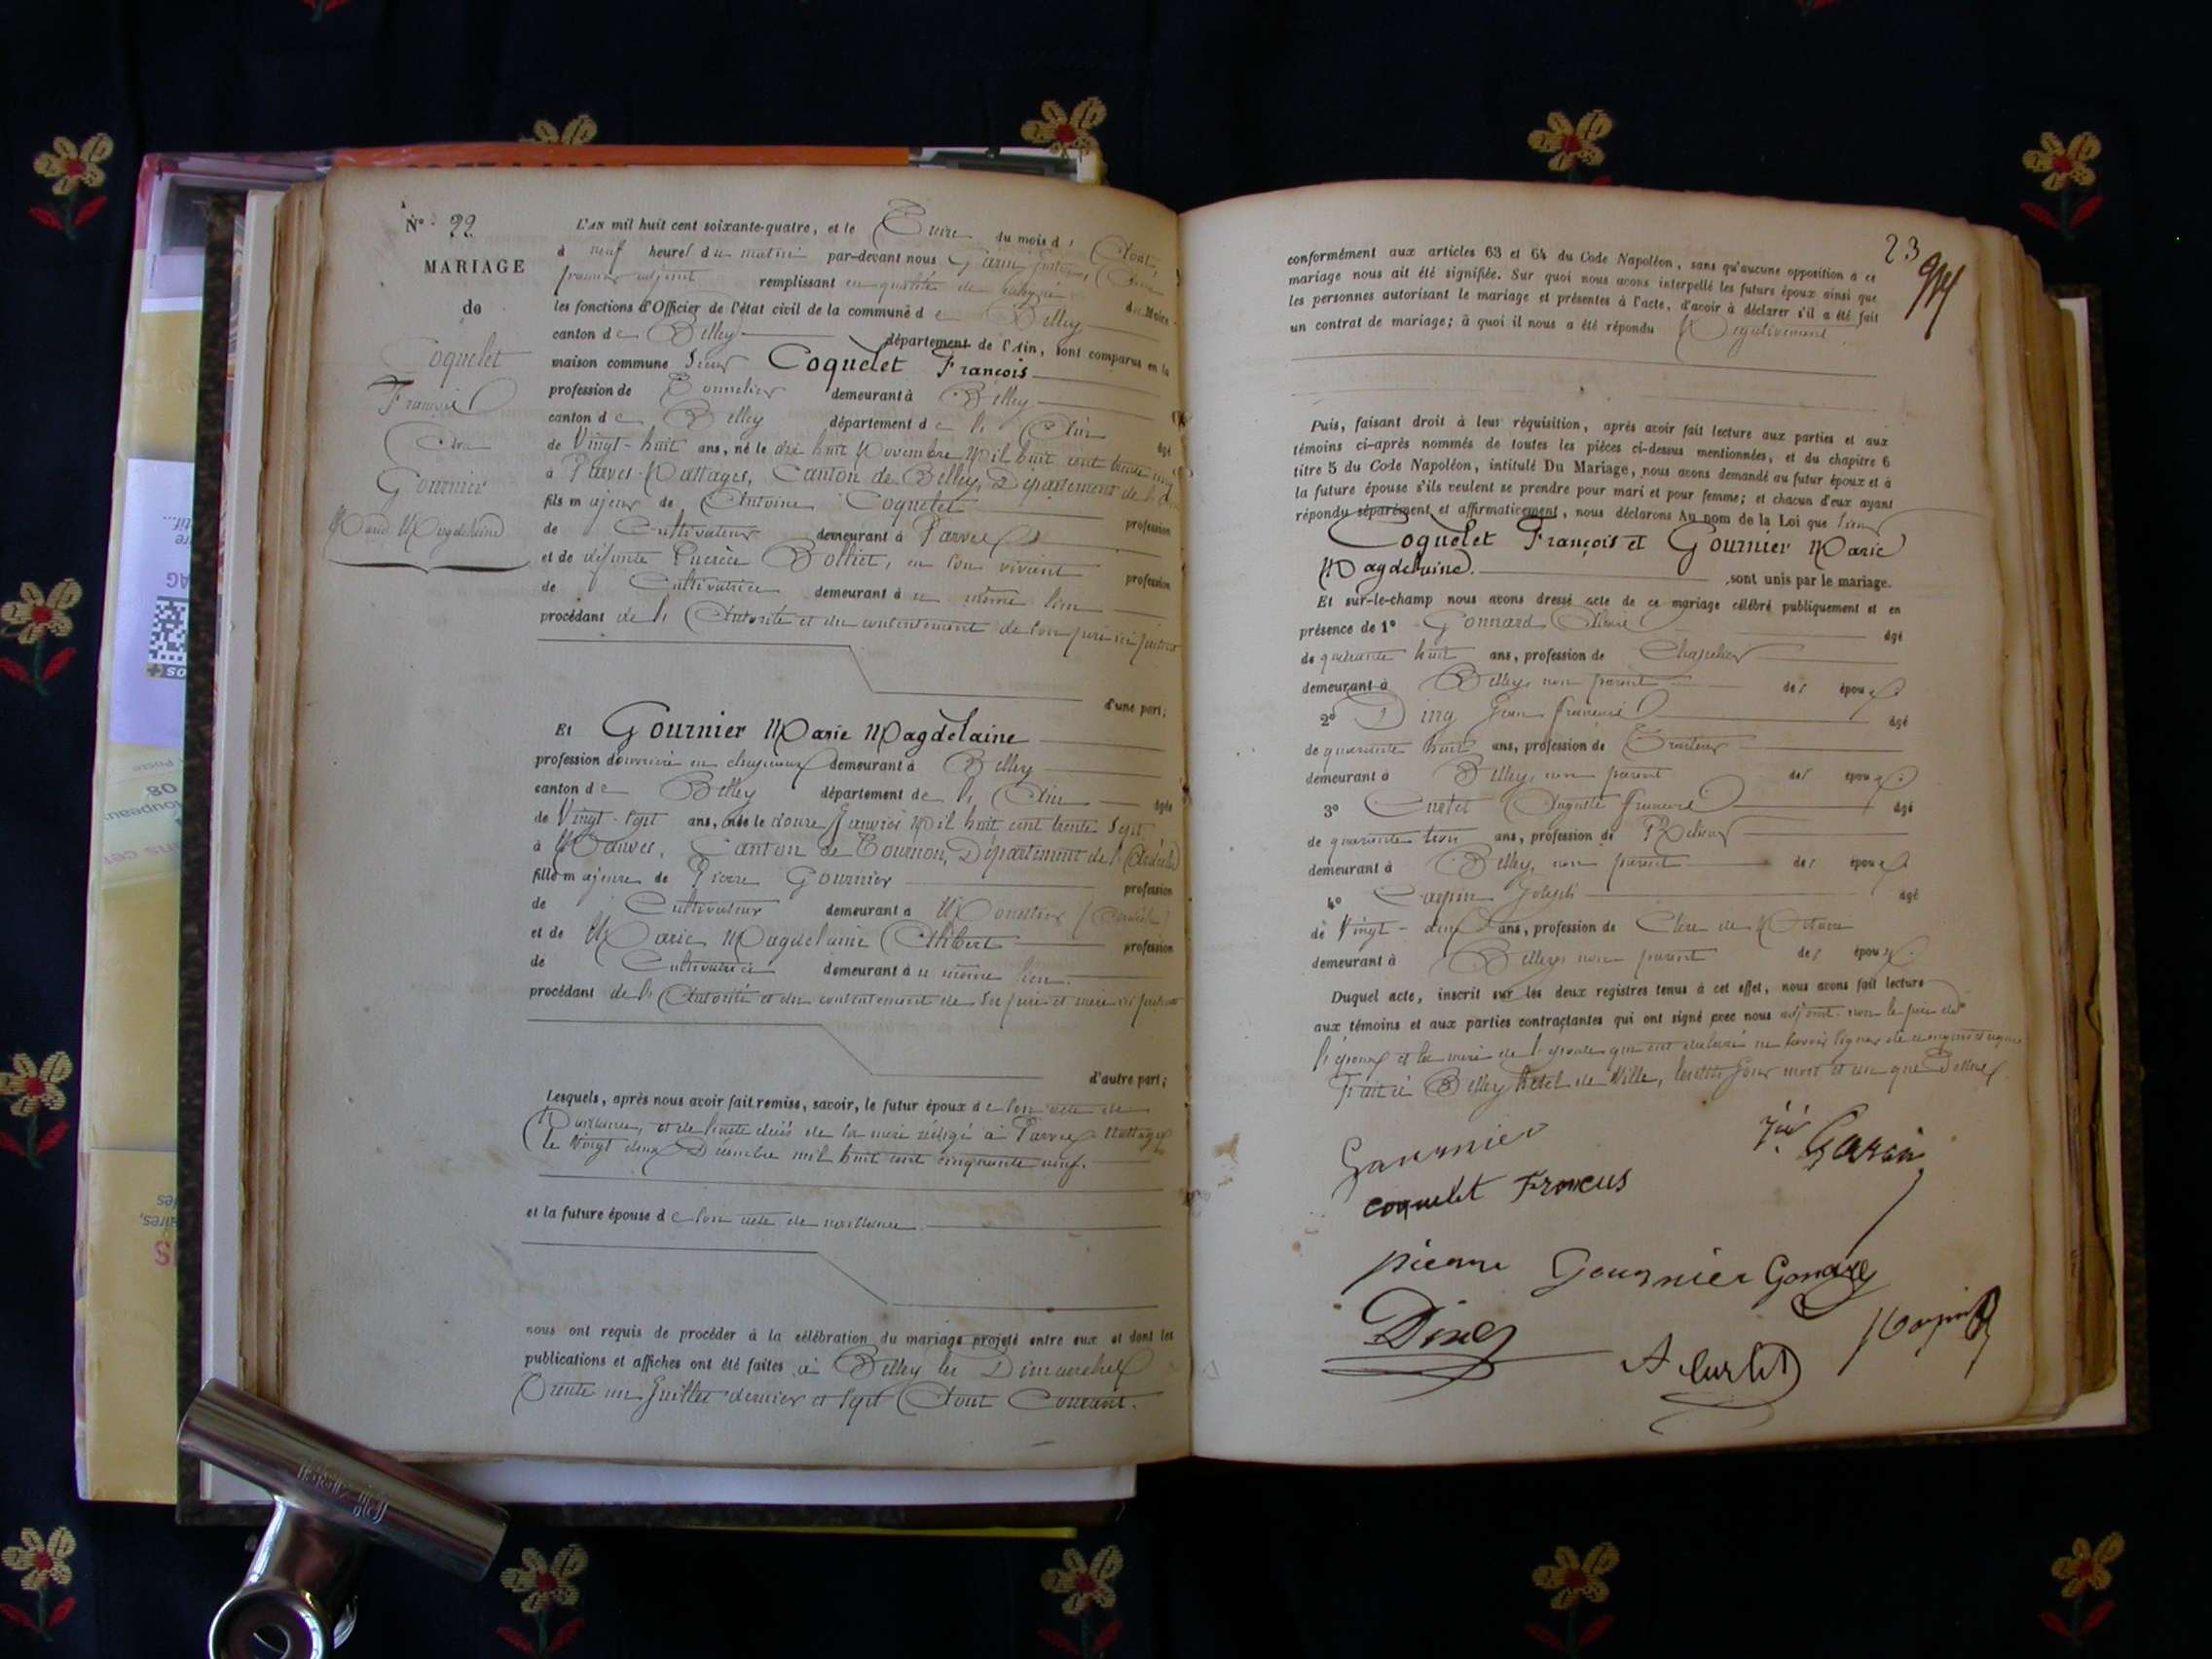 N° 22
MARIAGE
de
Coquelet
François
Et
Gournier
Marie Magdelaine
L'AN mil huit cent soixante-quatre, et le Treize du mois d' Août,
à neuf heures du matin par-devant nous Garin
premier adjoint remplissant en qualité de
les fonctions d'Officier de l'état civil de la commune de Belley
canton de Belley département de l'Ain, sont comparus en la
maison commune Sieur Coquelet François
profession de Tonnelier demeurant à Belley
canton de Belley département de l'Ain âgé
de Vingt-huit ans, né le dix huit Novembre Mil huit cent trente cinq
à Parves-Nattages, Canton de Belley, Département de l'Ain
fils majeur de Antoine Coquelet profession
de Cultivateur demeurant à Parves
et de défunte Lucrèce Bolliet, en son vivant profession
de Cultivatrice demeurant à même lieu
procédant de l'Autorité et du consentement de son père ici présent
d'une part;
Et Gournier Marie Magdelaine
profession d'ouvrière en chapeaux demeurant à Belley
canton de Belley département de l'Ain âgée
de Vingt-sept ans, née le douze Janvier Mil huit cent trente sept
à Mauves, Canton de Tournon, Département de l'Ardèche
fille majeure de Pierre Gournier profession
de Cultivateur demeurant à (Ardèche)
et de Marie Magdelaine Alibert profession
de Cultivatrice demeurant à même lieu
procédant de l'Autorité et du consentement de ses père et mère ici présents
d'autre part;
Lesquels, après nous avoir fait remise, savoir, le futur époux de son acte de
Naissance, et de l'acte décès de sa mère rédigé à Parves-Nattages
le Vingt deux Décembre mil huit cent cinquante neuf.
et la future épouse de son acte de naissance.
nous ont requis de procéder à la célébration du mariage projeté entre eux et dont les
publications et affiches ont été faites à Belley les Dimanches
Trente un Juillet dernier et sept Août Courant.
23
conformément aux articles 63 et 64 du Code Napoléon, sans qu'aucune opposition à ce
mariage nous ait été signifiée. Sur quoi nous avons interpellé les futurs époux ainsi que
les personnes autorisant le mariage et présentes à l'acte, d'avoir à déclarer s'il a été fait
un contrat de mariage; à quoi il nous a été répondu Négativement.
Puis, faisant droit à leur réquisition, après avoir fait lecture aux parties et aux
témoins ci-après nommés de toutes les pièces ci-dessus mentionnées, et du chapitre 6
titre 5 du Code Napoléon, intitulé Du Mariage, nous avons demandé au futur époux et à
la future épouse s'ils veulent se prendre pour mari et pour femme; et chacun d'eux ayant
répondu séparément et affirmativement, nous déclarons Au nom de la Loi que Sieur
Coquelet François et Gournier Marie
Magdelaine. sont unis par le mariage.
Et sur-le-champ nous avons dressé acte de ce mariage célébré publiquement et en
présence de 1° Gonnard âgé
de quarante huit ans, profession de Chapelier
demeurant à Belley, non parent des époux.
2° Ding Jean François âgé
de quarante huit ans, profession de Traiteur
demeurant à Belley, non parent des époux.
3° Curtet Auguste François âgé
de quarante trois ans, profession de Relieur
demeurant à Belley, non parent des époux
4° Carpin Joseph âgé
de Vingt-deux ans, profession de Clerc de Notaire
demeurant à Belley, non parent des époux.
Duquel acte, inscrit sur les deux registres tenus à cet effet, nous avons fait lecture
aux témoins et aux parties contractantes qui ont signé avec nous adjoint. non le père de
l'époux et la mère de l'épouse qui ont déclaré ne savoir signer de ce enquis et requis
Fait à Belley hôtel de Ville, lesdits jour mois et an que Dessus.
Gournier
Garin
coquelet Francus
pierre Gournier Gonard
Ding
A Curtet